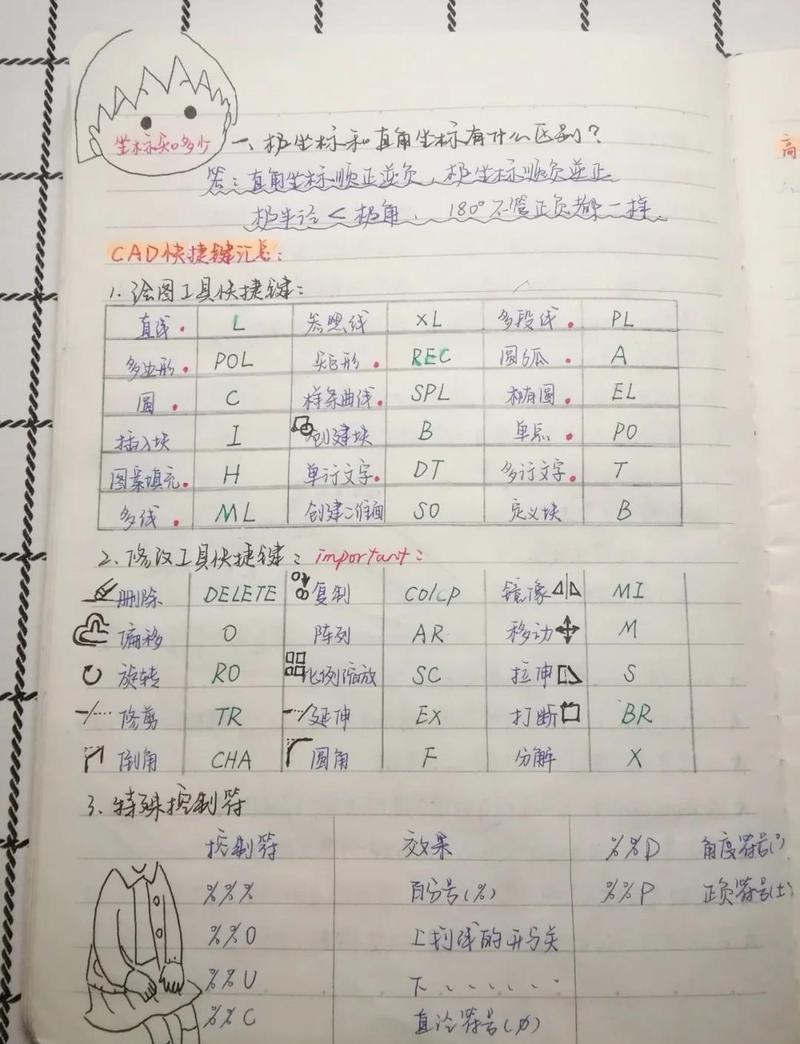 坐标知多少
一、极坐标和直角坐标有什么区别？
答：直角坐标顺正逆负，极坐标顺负逆正
极半径<极角，180°不管正负都一样。
CAD快捷键汇总：
1.绘图工具快捷键：
直线 L 参照线 XL 多段线 PL
多边形 POL 矩形 REC 圆弧 A
圆 C 样条曲线 SPL 椭圆 EL
插入块 I 创建块 B 单点 PO
图案填充 H 单行文字 DT 多行文字 T
多线 ML 创建二维面 SO 定义块 B
2.修改工具快捷键：important：
删除 DELETE 复制 CO/CP 镜像 MI
偏移 O 阵列 AR 移动 M
旋转 RO 比例缩放 SC 拉伸 S
修剪 TR 延伸 EX 打断 BR
倒角 CHA 圆角 F 分解 X
3.特殊控制符
控制符 效果 %%D 角度符号(°)
%%% 百分号(%) %%P 正负符号(±)
%%O 上划线的开与关
%%U 下、、、、、、
%%C 直径符号(∅)
高